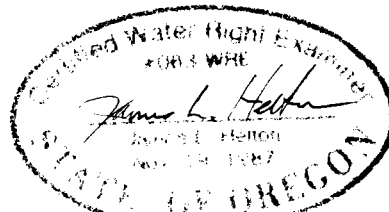 Certified Water Right Examiner
#063 WRE
James L. Helton
James L. Helton
Nov. 1987
STATE OF OREGON